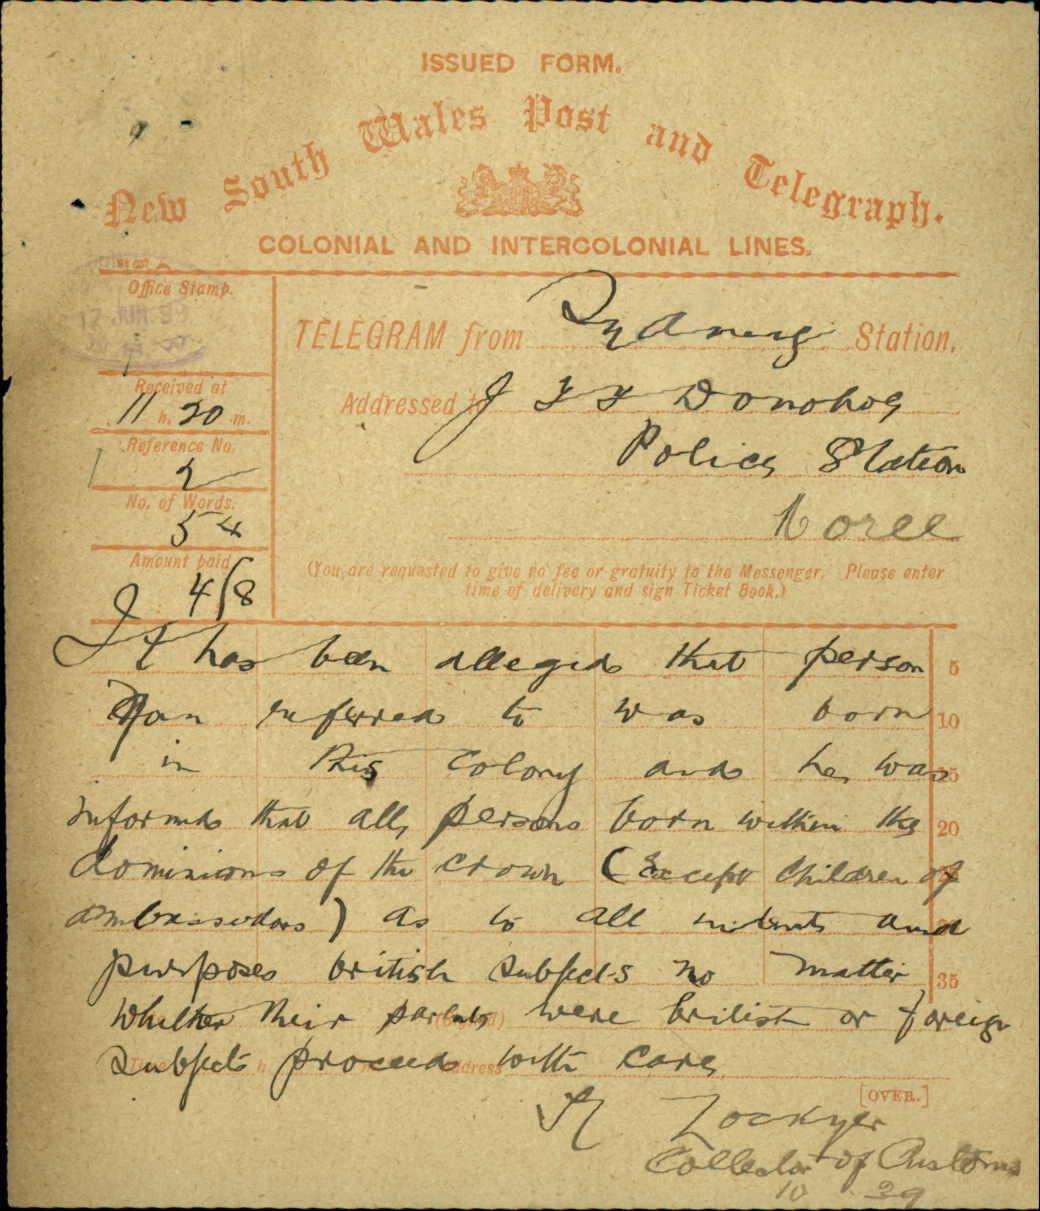 ISSUED FORM.
New South Wales Post and Telegraph.
COLONIAL AND INTERCOLONIAL LINES.
Office Stamp.
17 JUN 99
TELEGRAM from Sydney Station.
Received at
11 h. 20 m.
Addressed to J F F Donohoe
Police Station
Moree
Reference No.
2
No. of Words.
54
Amount paid
4/8
(You are requested to give no fee or gratuity to the Messenger. Please enter
time of delivery and sign Ticket Book.)
It has been alleged that person 5
referred to was born 10
in this colony and he was 15
informed that all persons born within the 20
dominions of the crown (Except Children of
ambassadors) as to all intents and
purposes british subjects no matter 35
whether their parents were british or foreign
subjects proceed with care
[OVER.]
N Lockyer
Collector of Customs
10 29